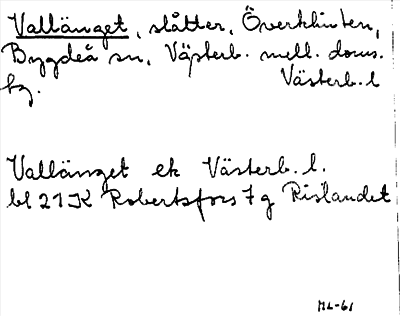 Vallänget, slåtter, Överklinten,
Bygdeå sn, Västerb. mell. doms.
hg. Västerb. l
Vallänget ek Västerb. l.
bl 21K Robertsfors 7g Rislandet
ML-61